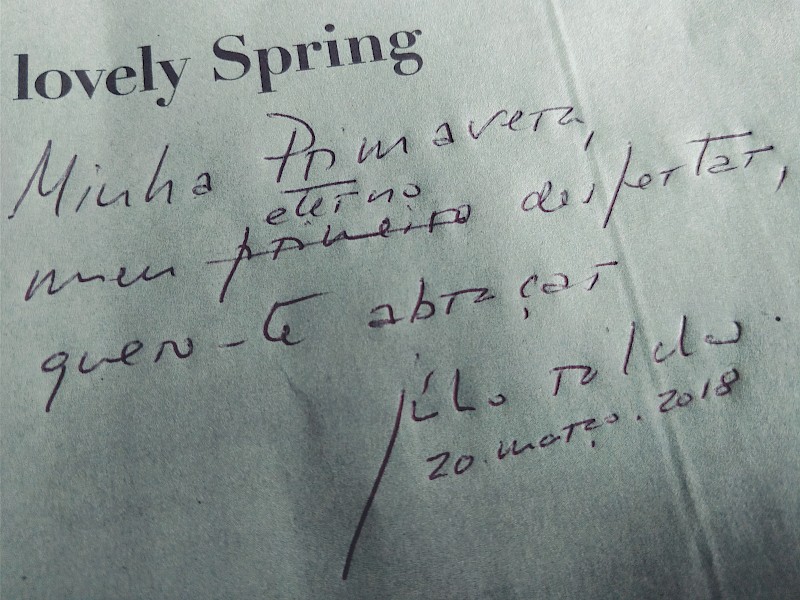 lovely Spring
Minha Primavera,
eterno
meu primeiro despertar,
quero-te abraçar
20.março.2018